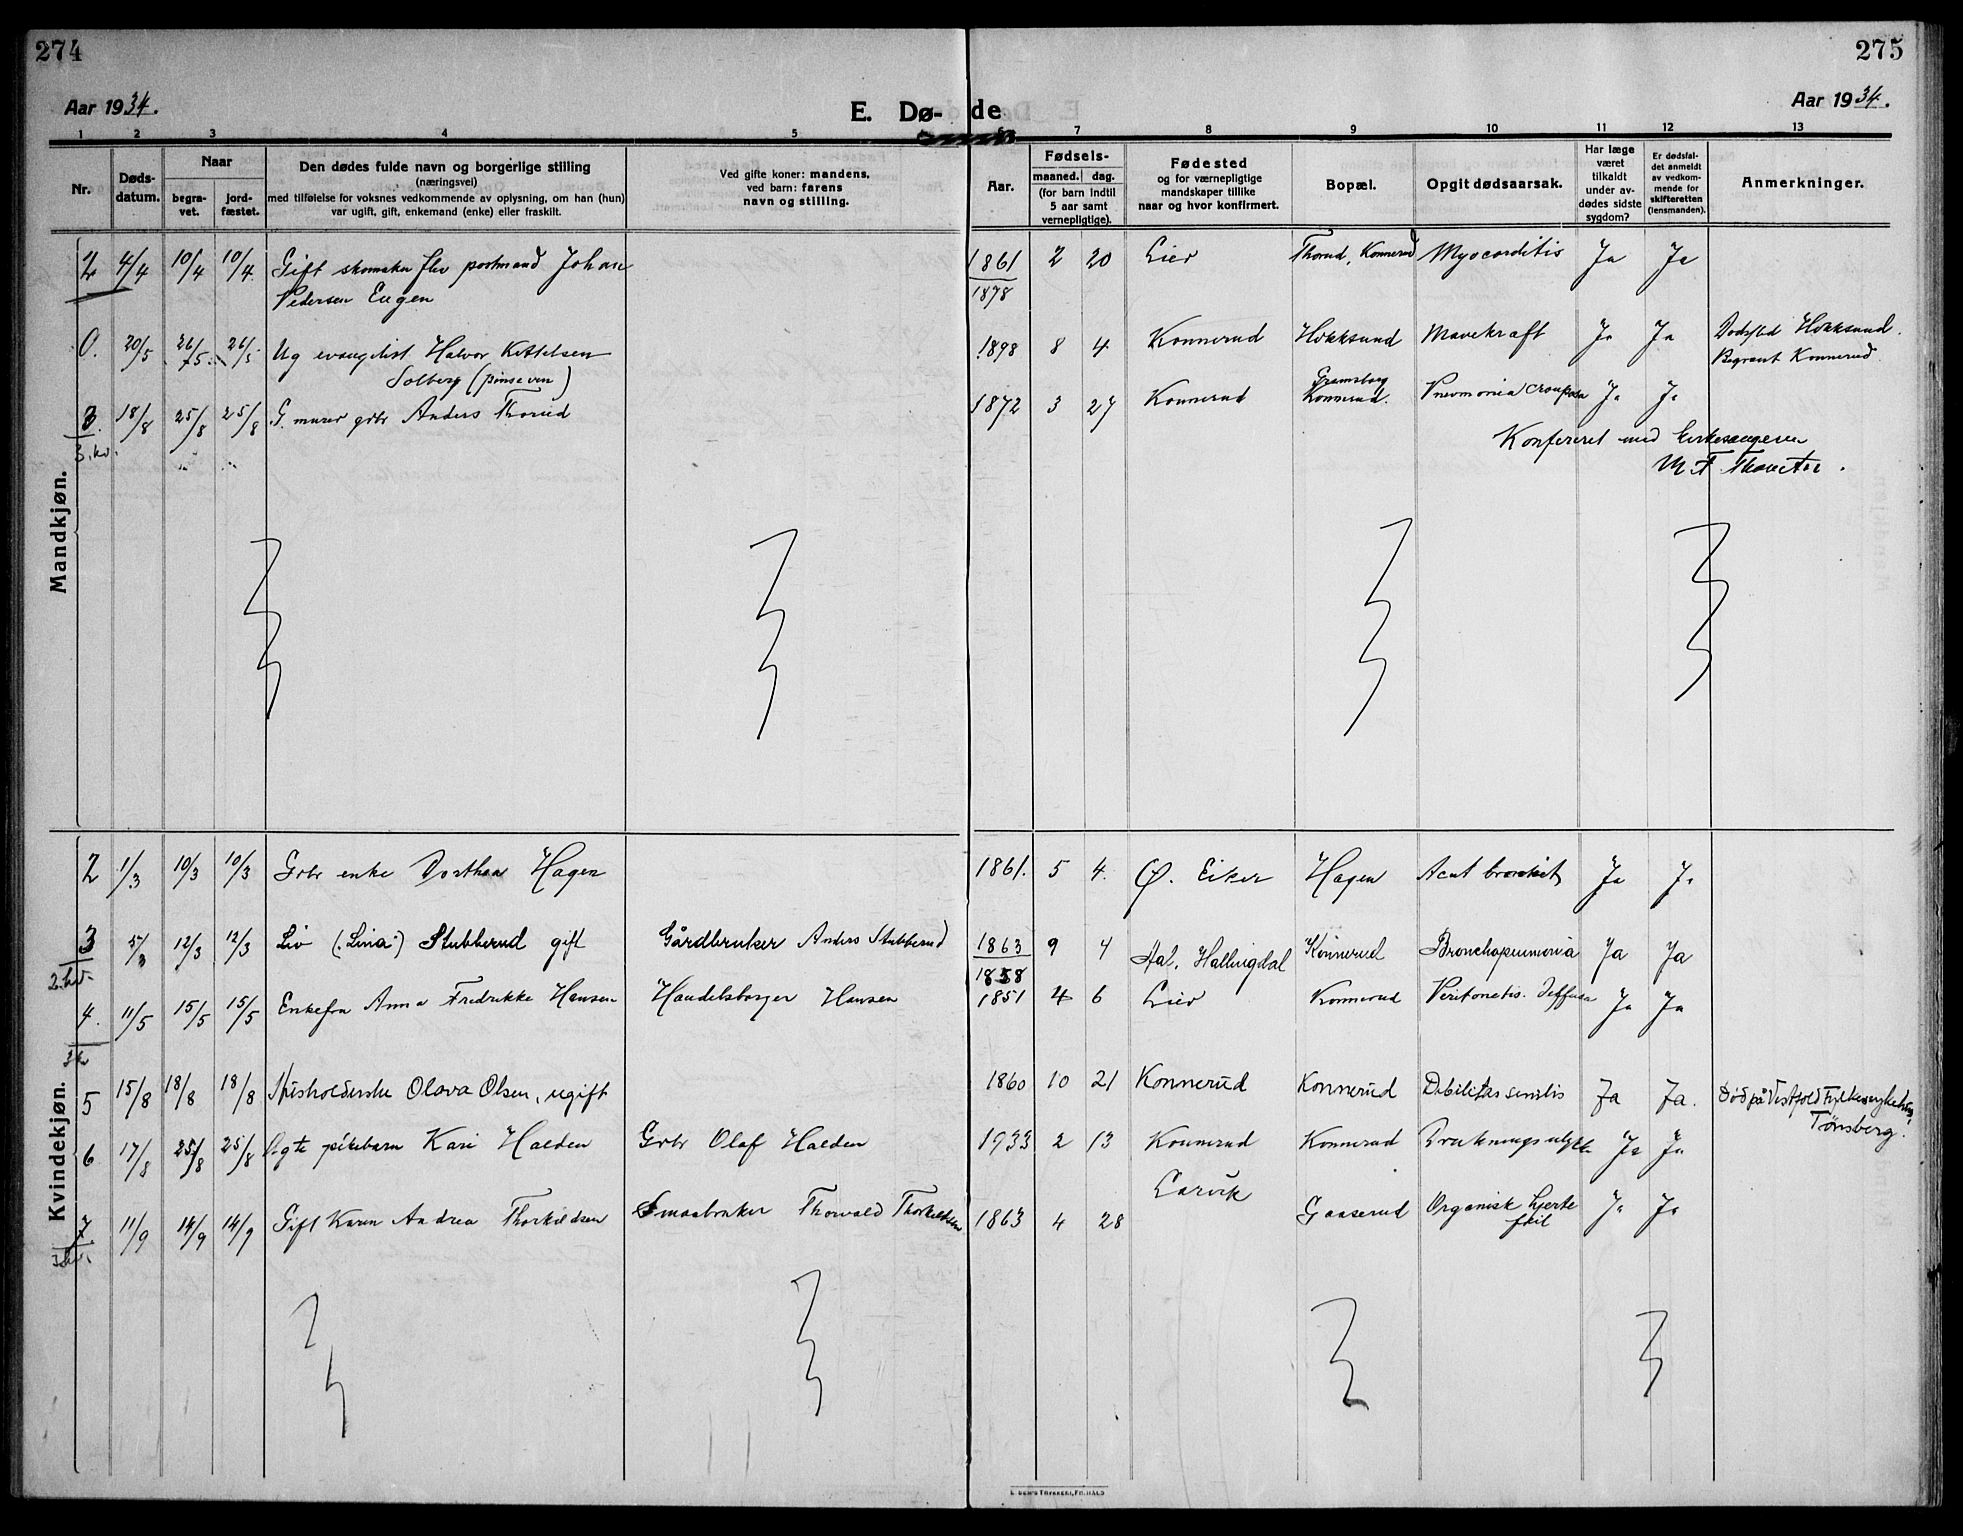 274
275
Aar 1934.
E. Dø-de
Aar 1934.
1 2 3 4 5 6 7 8 9 10 11 12 13
Nr.
Døds-
datum.
Naar
begra-
vet.
jord-
fæstet.
Den dødes fulde navn og borgerlige stilling
(næringsvei)
med tilføielse for voksnes vedkommende av oplysning, om han (hun)
var ugift, gift, enkemand (enke) eller fraskilt.
Ved gifte koner: mandens,
ved barn: farens
navn og stilling.
Aar.
Fødsels-
maaned. dag.
(for barn indtil
5 aar samt
vernepligtige).
Fødested
og for værnepligtige
mandskaper tillike
naar og hvor konfirmert.
Bopæl.
Opgit dødsaarsak.
Har læge
været
tilkaldt
under av-
dødes sidste
sygdom?
Er dødsfal-
det anmeldt
av vedkom-
mende for
skifteretten
(lensmanden).
Anmerkninger.
Mandkjøn.
2 4/4 10/4 10/4 Gift skomaker flv postmand Johan 1861 2 20 Lier Thorud, Konnerud Myocorditis Ja Ja
Pedersen Eugen 1878
0. 20/5 26/5 26/5 Ug evangelist Halvor Kittelsen 1898 8 4 Konnerud Hokksund Mavekræft Ja Ja Dødssted Hokksund.
Solberg (pinseven) Begravet Konnerud.
3. 18/8 25/8 25/8 G. murer grbr Anders Thorud 1872 3 27 Konnerud Konnerud. Pneumonia crouposa Ja Ja
3.kv.
Konferert med kirkesangeren
M. F.
Kvindekjøn.
2 1/3 10/3 10/3 Grbr enke Dorthea Hagen 1861. 5 4. Ø. Eiker Hagen Acut bronkit Ja Ja
3 5/3 12/3 12/3 Liv (: Lina :) Stubberud gift Gårdbruker Anders Stubberud 1863 9 4 Aal, Hallingdal Konnerud Bronchopneumonia Ja Ja
2.kv. 1858
4. 11/5 15/5 15/5 Enkefru Anna Fredrikke Hansen Handelsborger Hansen 1851 4 6 Lier Konnerud Peritonetis. Deffusa Ja Ja
5 15/8 18/8 18/8 Husholderske Olava Olsen, ugift 1860 10 21 Konnerud Konnerud Debilitas senilis Ja Ja. Død på Vestfold Fylkessykehus
Tønsberg.
6 17/8 25/8 25/8 Ægte pikebarn Kari Halden Grbr Olaf Halden 1933 2 13 Konnerud Konnerud Drukningsulykke Ja Ja
7 11/9 14/9 14/9 Gift Karen Andrea Thorkildsen Smaabruker Thorvald Thorkildsen 1863 4 28 Larvik Gaaserud Organisk hjerte Ja Ja
3.kv. feil